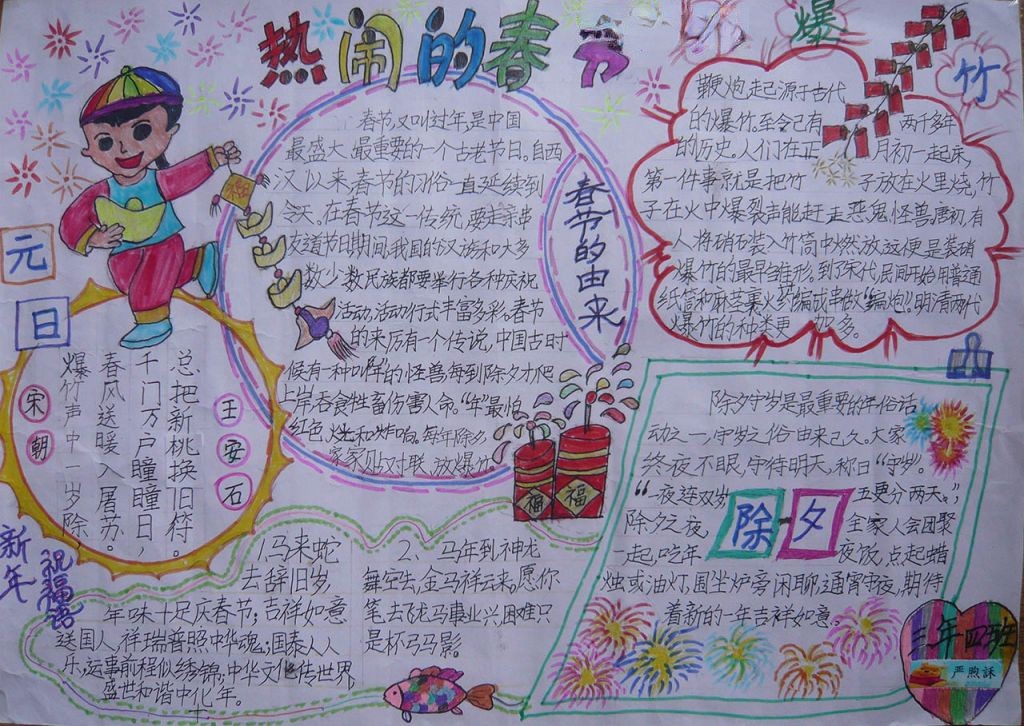 热闹的春节
春节又叫过年,是中国
最盛大、最重要的一个古老节日。自西
汉以来,春节的习俗一直延续到
今天。在春节这一传统,要走亲串
友道节日期间,我国的汉族和大多
数少数民族都要举行各种庆祝
活动,活动行式丰富多彩。春节
的来历有一个传说,中国古时
候有一种叫"年"的怪兽每到除夕才爬
上岸吞食牲畜伤害人命。"年"最怕
红色、火光和炸响。每年除夕,
家家贴对联、放爆竹。
春节的由来
爆
竹
鞭炮起源于古代
的爆竹。至今已有
两千多年
的历史。人们在正
月初一起床,
第一件事就是把竹
子放在火里烧,竹
子在火中爆裂声能赶走恶鬼,怪兽唐初,有
人将硝石装入竹筒中燃放,这便是装硝
爆竹的最早雏形。到了宋代,民间开始用普通
纸筒和麻茎裹火药编成串做"编炮",明清两代
爆竹的种类更
加多。
元
日
王安石
总把新桃换旧符。
千门万户瞳瞳日,
春风送暖入屠苏。
爆竹声中一岁除,
宋朝
除夕守岁是最重要的年俗活
动之一,守岁之俗由来已久。大家
终夜不眠,守待明天,称曰"守岁"。
"一夜连双岁,
五更分两天。"
除夕之夜,
全家人会团聚
一起,吃年
夜饭,点起蜡
烛或油灯,围坐炉旁闲聊,通宵守夜,期待
着新的一年吉祥如意。
除
夕
新年
祝福语
1.马来蛇
去辞旧岁
年味十足庆春节;吉祥如意
送国人,祥瑞普照中华魂;国泰人人
乐,运事前程似绣锦;中华文化传世界,
盛世和谐中化年。
2、马年到神龙
舞空去,金马祥云来。愿你
笔去飞龙马事业兴,困难只
是杯弓马影。
福
福
三年四班